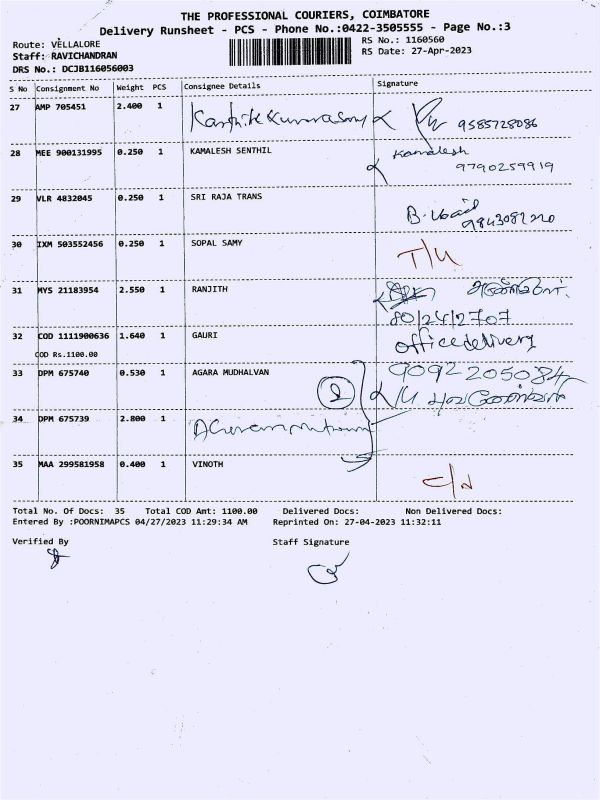 THE PROFESSIONAL COURIERS, COIMBATORE
Delivery Runsheet - PCS - Phone No.:0422-3505555 - Page No.:3
Route: VELLALORE
RS No.: 1160560
Staff: RAVICHANDRAN
RS Date: 27-Apr-2023
DRS No.: DCJB116056003
S No Consignment No Weight PCS Consignee Details Signature
27 AMP 705451 2.400 1 Karthik Kumarasamy 9585728086
28 MEE 900131995 0.250 1 KAMALESH SENTHIL Kamalesh
9790259919
29 VLR 4832045 0.250 1 SRI RAJA TRANS
30 IXM 503552456 0.250 1 SOPAL SAMY T/U
31 MYS 21183954 2.550 1 RANJITH
80/24/2707
32 COD 1111900636 1.640 1 GAURI office delivery
COD Rs.1100.00
33 DPM 675740 0.530 1 AGARA MUDHALVAN 9092205084
2
34 DPM 675739 2.800 1
35 MAA 299581958 0.400 1 VINOTH C/N
Total No. Of Docs: 35 Total COD Amt: 1100.00 Delivered Docs: Non Delivered Docs:
Entered By :POORNIMAPCS 04/27/2023 11:29:34 AM Reprinted On: 27-04-2023 11:32:11
Verified By Staff Signature